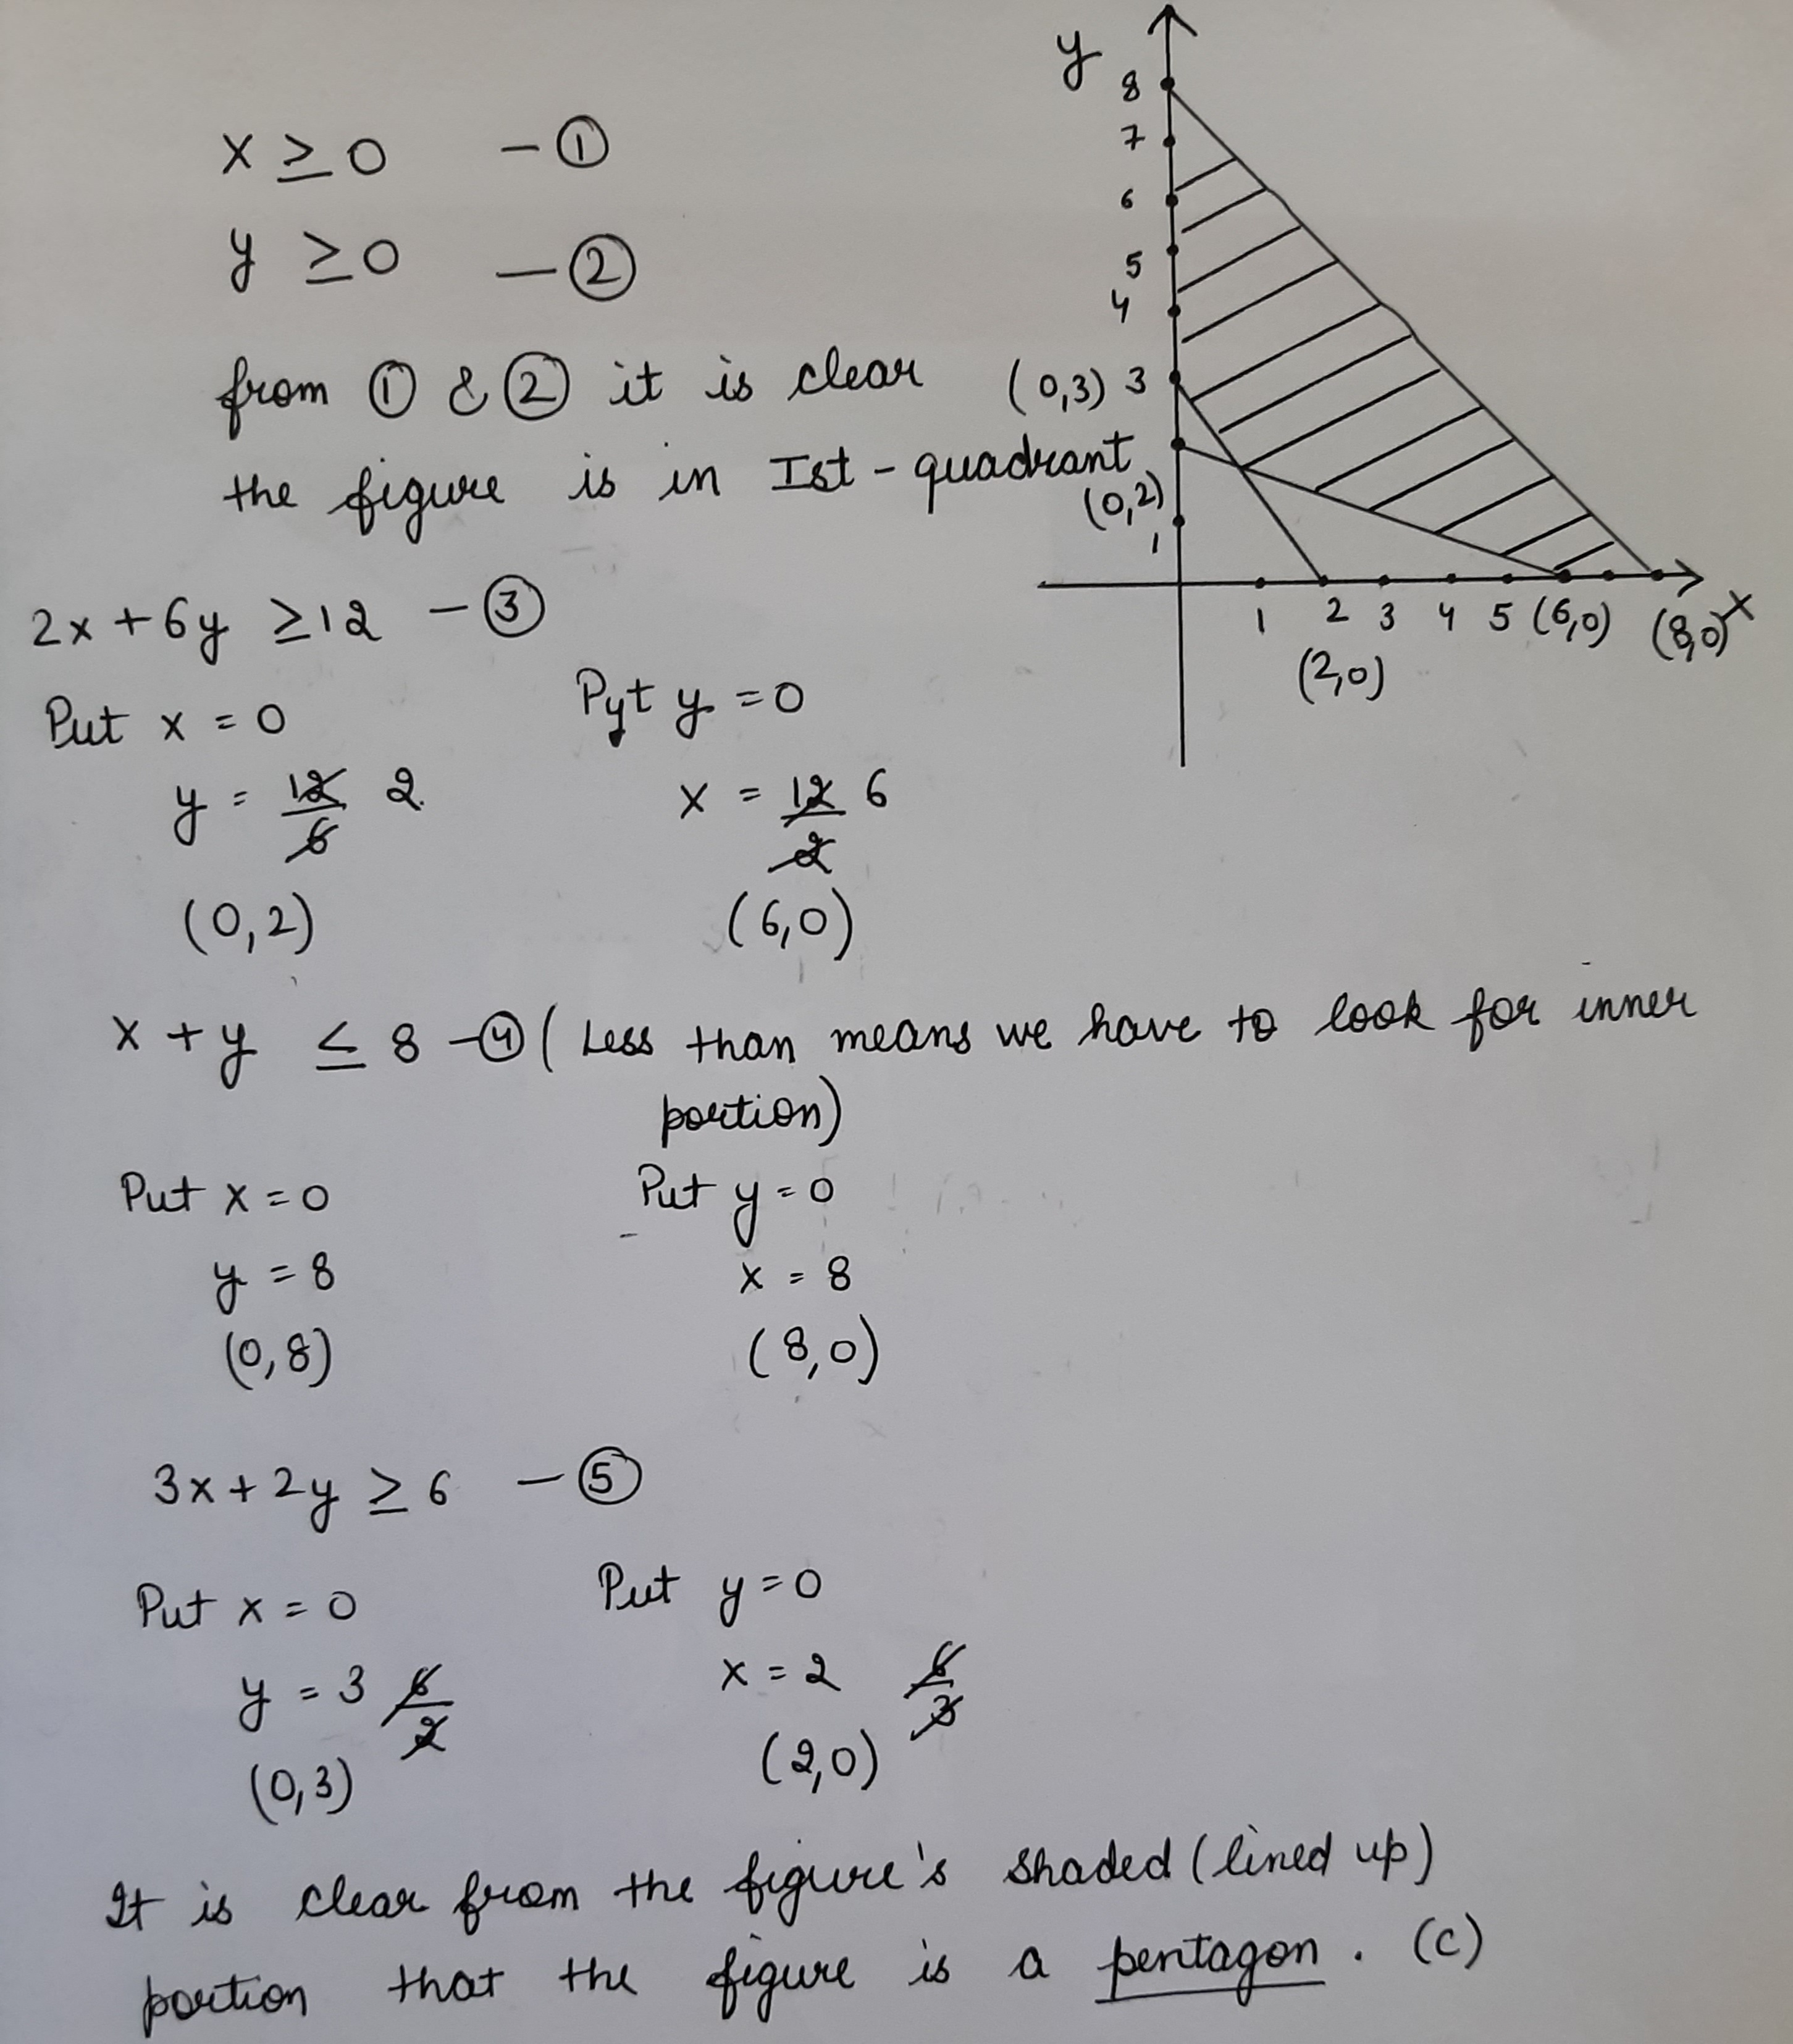 x ≥ 0 - ①
y ≥ 0 - ②
from ① & ② it is clear
the figure is in Ist - quadrant
y
8
7
6
5
4
(0,3) 3
(0,2)
1
1 2 3 4 5 (6,0) (8,0) x
(2,0)
2x + 6y ≥ 12 - ③
Put x = 0 Pyt y = 0
y = 12/6 2 x = 12/2 6
(0,2) (6,0)
x + y ≤ 8 - ④ ( Less than means we have to look for inner
portion)
Put x = 0 Put y = 0
y = 8 x = 8
(0,8) (8,0)
3x + 2y ≥ 6 - ⑤
Put x = 0 Put y = 0
y = 3 6/2 x = 2 6/3
(0,3) (2,0)
It is clear from the figure's shaded (lined up)
portion that the figure is a pentagon. (C)